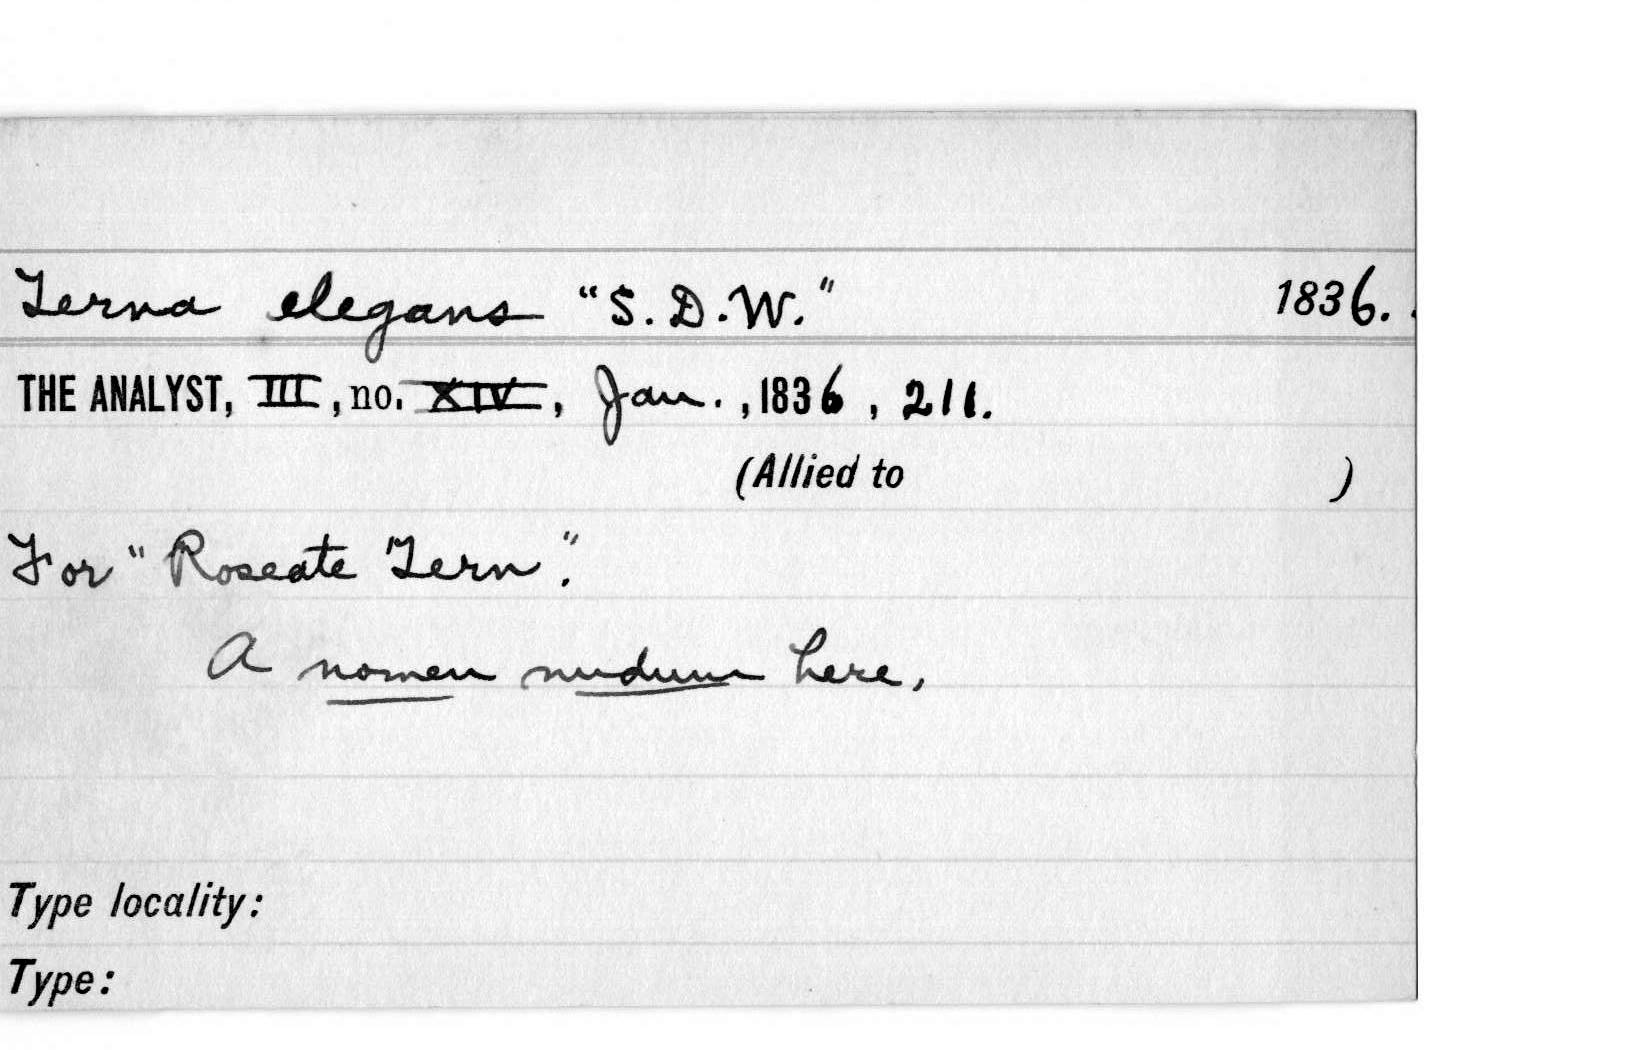 Terna elegans "S.D.W." 1836.
THE ANALYST, III, no. XIV, Jan., 1836, 211.
(Allied to )
For "Roseate Tern".
A nomen nudum here,
Type locality:
Type: